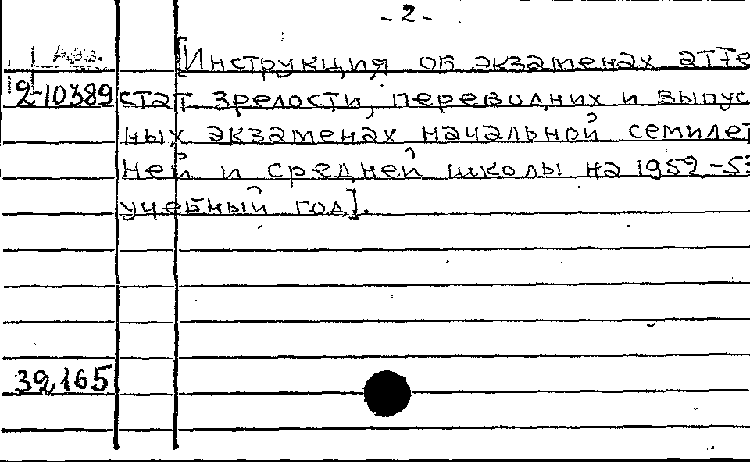 - 2 -
Аза.
[Инструкция об экзаменах атте
2-10389 стат зрелости, переводних и выпус
ных экзаменах начальной семилет
ней и средней школы на 1952-53
учебный год].
39,165